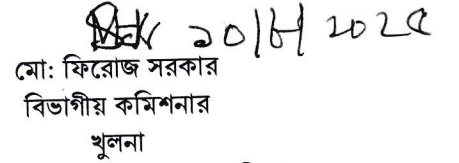 ২০/৮/২০২৫
মো: ফিরোজ সরকার
বিভাগীয় কমিশনার
খুলনা